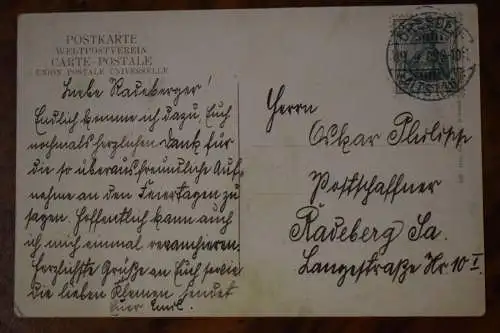 POSTKARTE
WELTPOSTVEREIN
CARTE-POSTALE
UNION POSTALE UNIVERSELLE
Liebe Radeberger!
Endlich komme ich dazu, Euch
nochmals herzlichen Dank für
die so überaus freundliche Auf-
nahme an den Feiertagen zu
sagen. Hoffentlich kann auch
ich mich einmal revanchieren.
Herzlichste Grüße an Euch sowie
die lieben Kleinen sendet
Euer Emil.
DRESDEN
ALTSTADT
Herrn
Oskar
Postschaffner
Radeberg Sa.
Langestraße Nr 10 I.